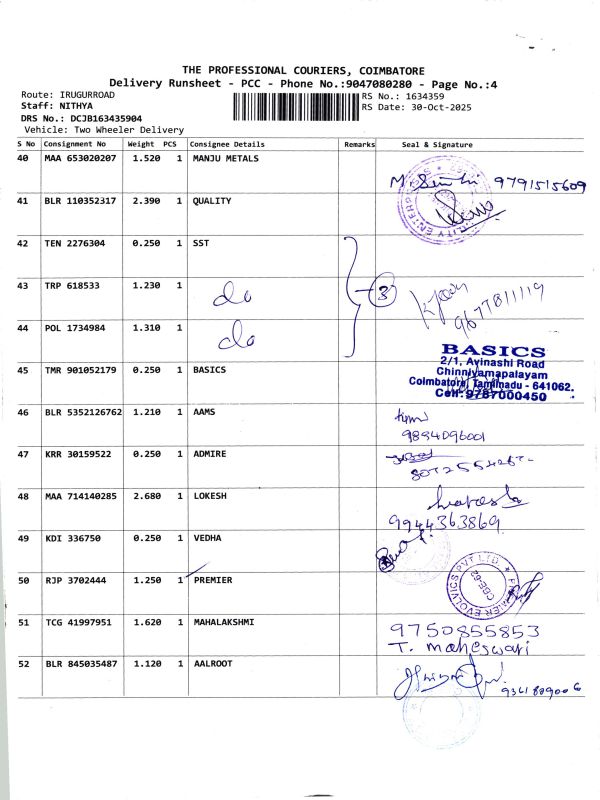 THE PROFESSIONAL COURIERS, COIMBATORE
Delivery Runsheet - PCC - Phone No.:9047080280 - Page No.:4
Route: IRUGURROAD
RS No.: 1634359
Staff: NITHYA
RS Date: 30-Oct-2025
DRS No.: DCJB163435904
Vehicle: Two Wheeler Delivery
S No Consignment No Weight PCS Consignee Details Remarks Seal & Signature
40 MAA 653020207 1.520 1 MANJU METALS
9791515609
41 BLR 110352317 2.390 1 QUALITY
42 TEN 2276304 0.250 1 SST
43 TRP 618533 1.230 1 do 3
9677811119
44 POL 1734984 1.310 1 do
45 TMR 901052179 0.250 1 BASICS
BASICS
2/1, Avinashi Road
Chinniyampalayam
Coimbatore, Tamilnadu - 641062.
Cell: 9787000450
46 BLR 5352126762 1.210 1 AAMS
9894096001
47 KRR 30159522 0.250 1 ADMIRE
48 MAA 714140285 2.680 1 LOKESH
9944363869
49 KDI 336750 0.250 1 VEDHA
50 RJP 3702444 1.250 1 PREMIER
PREMIER EVOLVICS PVT LTD.
CBE-62
51 TCG 41997951 1.620 1 MAHALAKSHMI
9750855853
T. maheswari
52 BLR 845035487 1.120 1 AALROOT